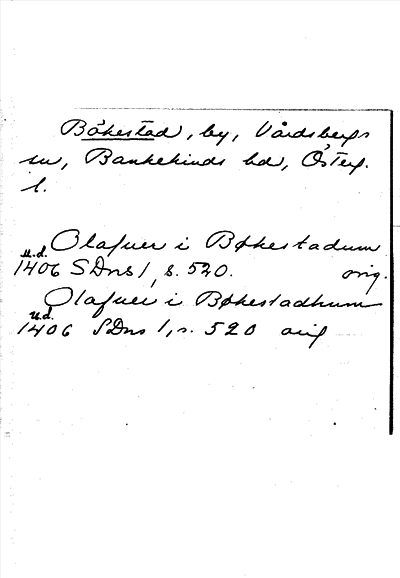 Bökestad, by, Vårdsbergs
sn, Bankekinds hd, Österg.
l.
Olafuer i Bøkestadum
u.d.
1406 SDns 1, s. 520. orig.
Olafuer i Bøkestadhum
u.d.
1406 SDns 1, s. 520 orig